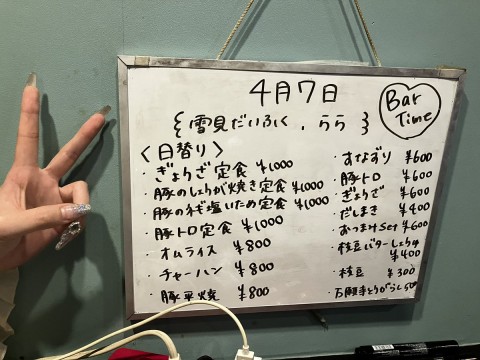 4月7日
{雪見だいふく、らら}
Bar Time
〈日替り〉
・ぎょうざ定食 ¥1000
・豚のしょうが焼き定食 ¥1000
・豚のネギ塩いため定食 ¥1000
・豚トロ定食 ¥1000
・オムライス ¥800
・チャーハン ¥800
・豚平焼 ¥800
・すなずり ¥600
・豚トロ ¥600
・ぎょうざ ¥600
・だしまき ¥400
・おつまみset ¥600
・枝豆バターしょうゆ
¥400
・枝豆 ¥300
・万願寺とうがらし